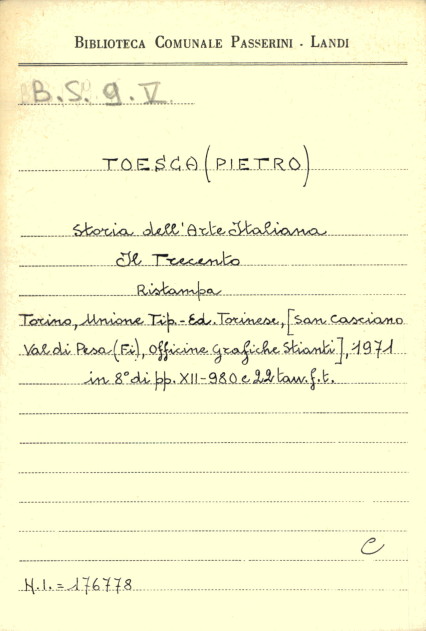 BIBLIOTECA COMUNALE PASSERINI - LANDI
B.S. 9. V
TOESCA (PIETRO)
Storia dell'Arte Italiana
Il Trecento
Ristampa
Torino, Unione Tip.-Ed. Torinese, [San Casciano
Val di Pesa (Fi), Officine Grafiche Stianti], 1971
in 8° di pp. XII-980 e 22 tav. f.t.
C
N.I. = 176778